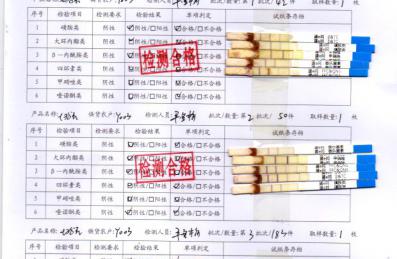 产品名称: 供货农户: 7003 检测人员: 批次/数量:第1次/42件 取样数量:1 枚
序号 检验项目 检测要求 检验结果 单项判定 试纸条存档
1 磺胺类 阴性 ☑阴性/☐阳性 ☑合格/☐不合格
2 大环内酯类 阴性 ☑阴性/☐阳性 ☑合格/☐不合格
3 β-内酰胺类 阴性 ☑阴性/☐阳性 ☑合格/☐不合格
4 四环素类 阴性 ☑阴性/☐阳性 ☑合格/☐不合格
5 甲砜霉素 阴性 ☑阴性/☐阳性 ☑合格/☐不合格
6 喹诺酮类 阴性 ☑阴性/☐阳性 ☑合格/☐不合格
检测合格
产品名称: 供货农户: 7003 检测人员: 批次/数量:第2次/50件 取样数量:1 枚
序号 检验项目 检测要求 检验结果 单项判定 试纸条存档
1 磺胺类 阴性 ☑阴性/☐阳性 ☑合格/☐不合格
2 大环内酯类 阴性 ☑阴性/☐阳性 ☑合格/☐不合格
3 β-内酰胺类 阴性 ☑阴性/☐阳性 ☑合格/☐不合格
4 四环素类 阴性 ☑阴性/☐阳性 ☑合格/☐不合格
5 甲砜霉素 阴性 ☑阴性/☐阳性 ☑合格/☐不合格
6 喹诺酮类 阴性 ☑阴性/☐阳性 ☑合格/☐不合格
检测合格
产品名称: 供货农户: 7003 检测人员: 批次/数量:第3次/184件 取样数量:1 枚
序号 检验项目 检测要求 检验结果 单项判定 试纸条存档